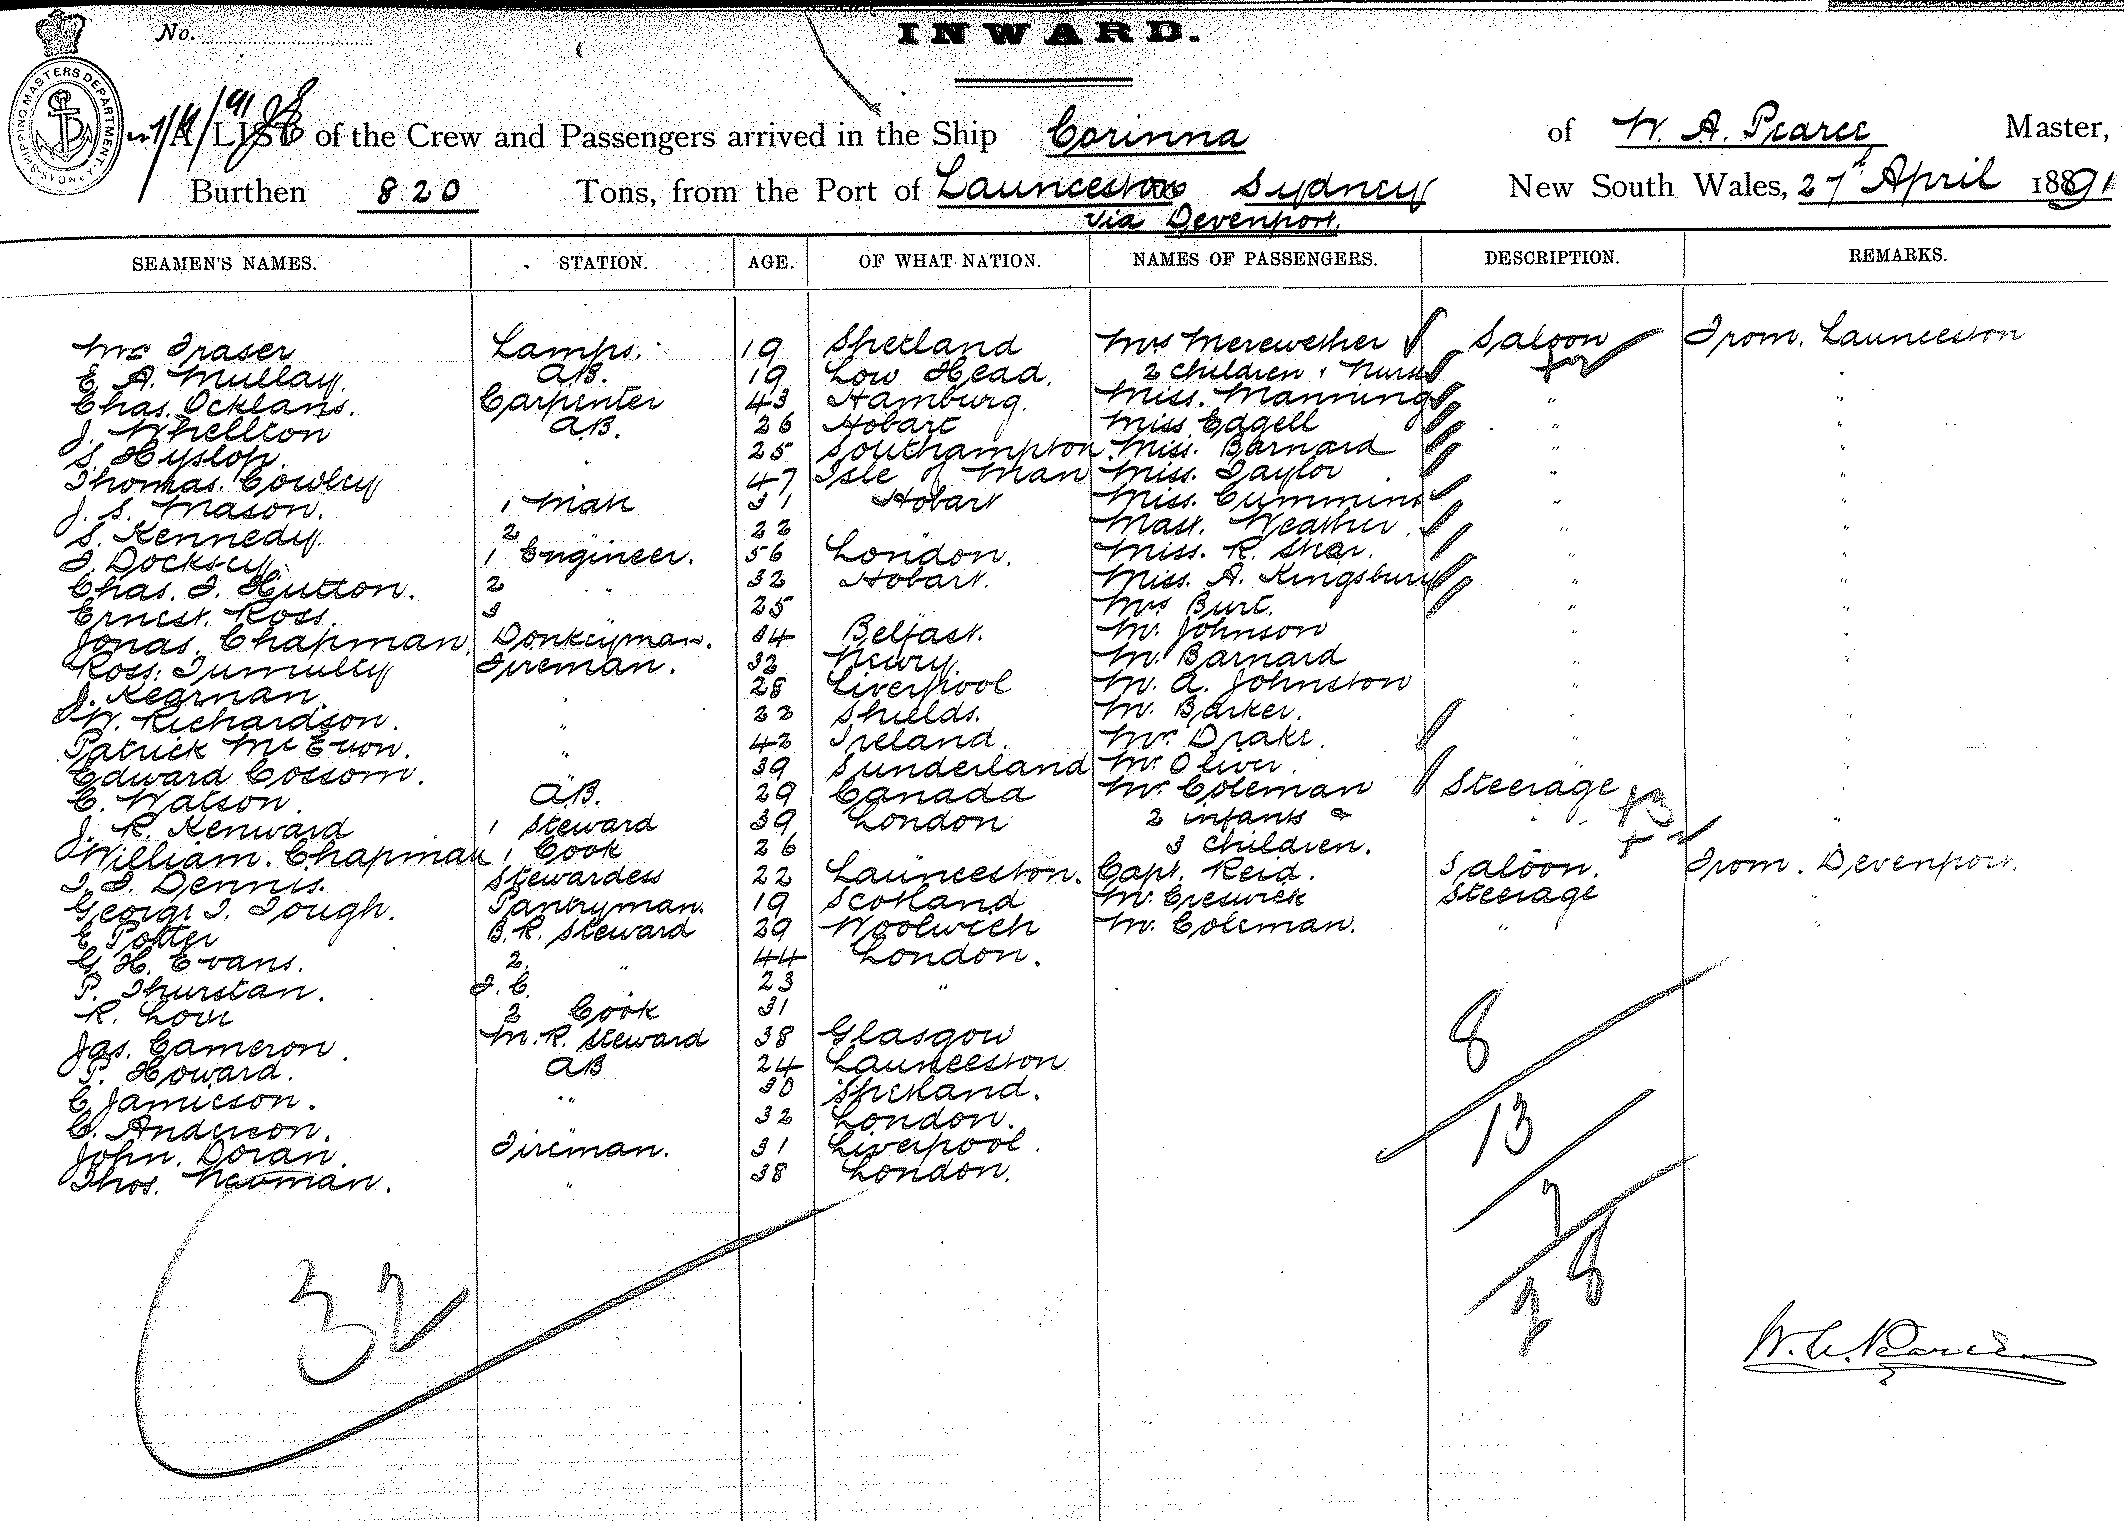 No.
INWARD.
SHIPPING MASTERS DEPARTMENT
A LIST of the Crew and Passengers arrived in the Ship Corinna of W. A. Pearce Master,
Burthen 820 Tons, from the Port of Launceston Sydney New South Wales, 27th April 1891
via Devenport.
SEAMEN'S NAMES. STATION. AGE. OF WHAT NATION. NAMES OF PASSENGERS. DESCRIPTION. REMARKS.
Mc Fraser Lamps. 19 Shetland Mrs Merewether Saloon From. Launceston
E. A. Mullay. AB. 19 Low Head. 2 children & Nurse "
Chas. Ocklans. Carpenter 43 Hamburg. Miss. Manning " "
J. Whellton AB. 26 Hobart Miss Edgell " "
S. Hyslop. " 25 Southampton. Miss. Barnard " "
Thomas. Cowley 47 Isle of Man Miss. Taylor " "
J. S. Mason. 1 Mate 31 Hobart Miss. Cummins " "
S. Kennedy. 2 22 Mast. Weather " "
J. Docksey 1 Engineer. 56 London. Miss. R. Shar. " "
Chas. J. Hutton. 2 " 32 Hobart. Miss. A. Kingsbury " "
Ernest. Ross. 3 25 Mrs Burt. " "
Jonas. Chapman. Donkeyman. 34 Belfast. Mr. Johnson " "
Ross. Tumulty Fireman. 32 Newry. Mr. Barnard "
J. Kearnan. " 28 Liverpool Mr. A. Johnston " "
W. Richardson. " 22 Shields. Mr. Barker. " "
Patrick McEwon. " 42 Ireland. Mr. Drake. " "
Edward Cossom. 39 Sunderland Mr. Oliver.
C. Watson. AB. 29 Canada Mr. Coleman Steerage "
J. R. Kenward 1 Steward 39 London 2 infants & " "
William. Chapman 1 Cook 26 3 children.
J. J. Dennis. Stewardess 22 Launceston. Capt. Reid. Saloon. From. Devenport.
George T. Tough. Pantryman. 19 Scotland Mr. Creswick Steerage
E. Potter B. R. Steward 29 Woolwich Mr. Coleman. " "
G. H. Evans. 2. " 44 London.
P. Thurstan. F. C. 23 "
R. Love 2 Cook 31
Jas. Cameron. M. R. Steward 38 Glasgow
P. Howard. AB 24 Launceston
C. Jamieson. " 30 Shetland.
C. Anderson. 32 London.
John. Doran. Fireman. 31 Liverpool.
Thos. Newman. " 38 London.
8
13
7
28
32
W. A. Pearce